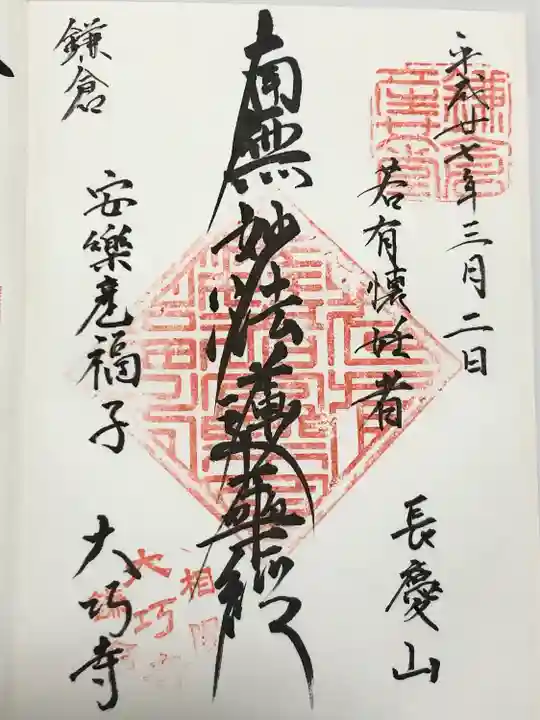 平成廿七年三月二日
若有懐妊者
長慶山
南無妙法蓮華経
鎌倉
安樂産福子
大巧寺